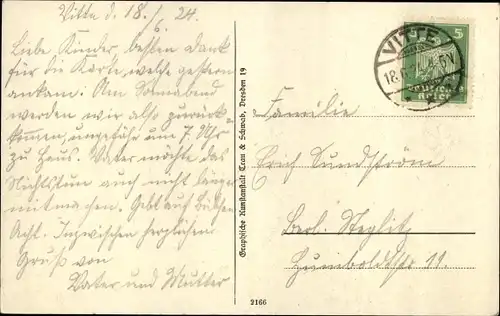 Vitte d. 18./6. 24.
Liebe Kinder, besten Dank
für die Karte, welche gestern
ankam. Am Sonnabend
werden wir also zurück-
kommen, ungefähr um 7 Uhr
zu Haus. Vater möchte das
Nichtstun auch nicht länger
mitmachen. Gebt auf
Acht. Inzwischen herzlichen
Gruß von
Vater und Mutter
Graphische Kunstanstalt Trau & Schwab, Dresden 19
2166
5
VITTE
Familie
Erich Sundström
Berl. Steglitz
Humboldtstr 19.